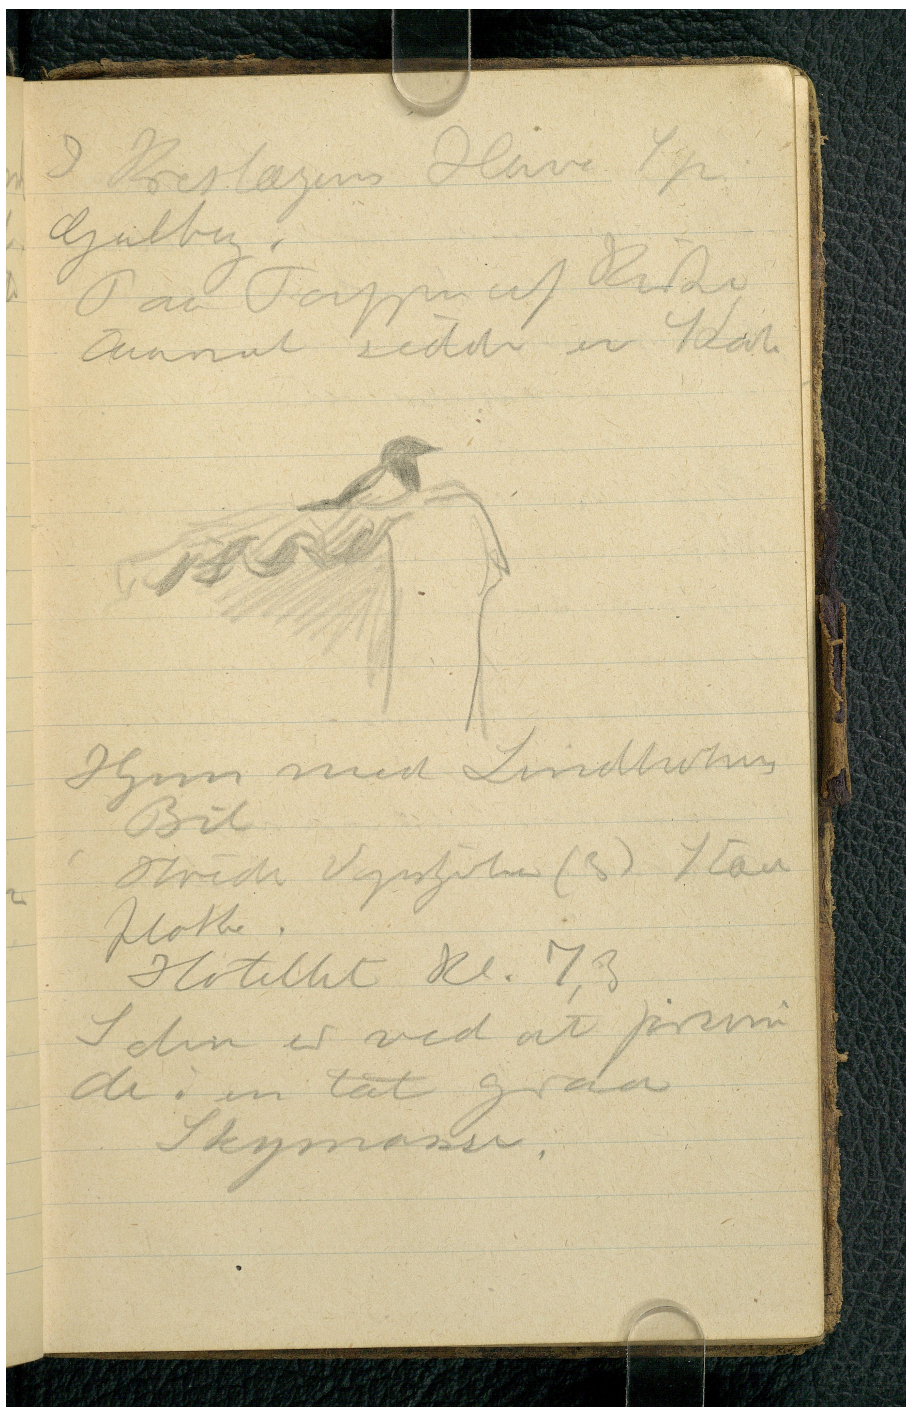 I Kreslægens Have Sp.
Gulbug.
Paa Toppen af Kirke
taarnet sidder en Skade
Hjem med Lindholms
Bil
Hvide Vipstjerter (3) Staer
flokke.
Hotellet Kl. 7,3
Solen er ved at forsvin
de i en tæt graa
Skymasse.